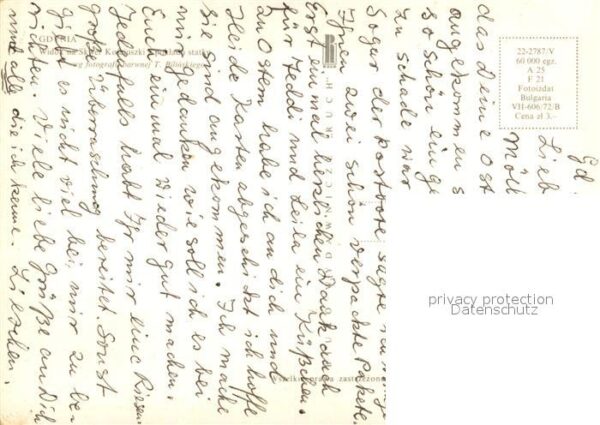 Gd
Lieb
Möll
das Deine Ost
angekommen s
so schön einge
zu schade war
Sogar der Postbote sagte
Ihnen zwei schön verpackte Pakete.
Erst einmal herzlichen Dank auch
für Teddi und Leila ein Küßchen.
Zu Ostern habe ich an dich und
Heide Karten abgeschickt ich hoffe
sie sind angekommen. Ich mache
mir Gedanken wie soll ich es bei
Euch einmal wieder gut machen.
Jedenfalls habt Ihr mir eine Riesen
große Überraschung bereitet Sonst
gibt es nicht viel bei mir zu be-
richten. Viele liebe Grüße an Dich
und alle die ich kenne. Lieschen.
GDYNIA
Widok na Skwer Kościuszki
statki
fotografii barwnej T. Bilińskiego
RUCH
22-2787/V
60 000 egz.
A 25
F 21
Fotoizdat
Bulgaria
VH-606/72/B
Cena zł 3.–
prawa zastrzeżone
privacy protection
Datenschutz